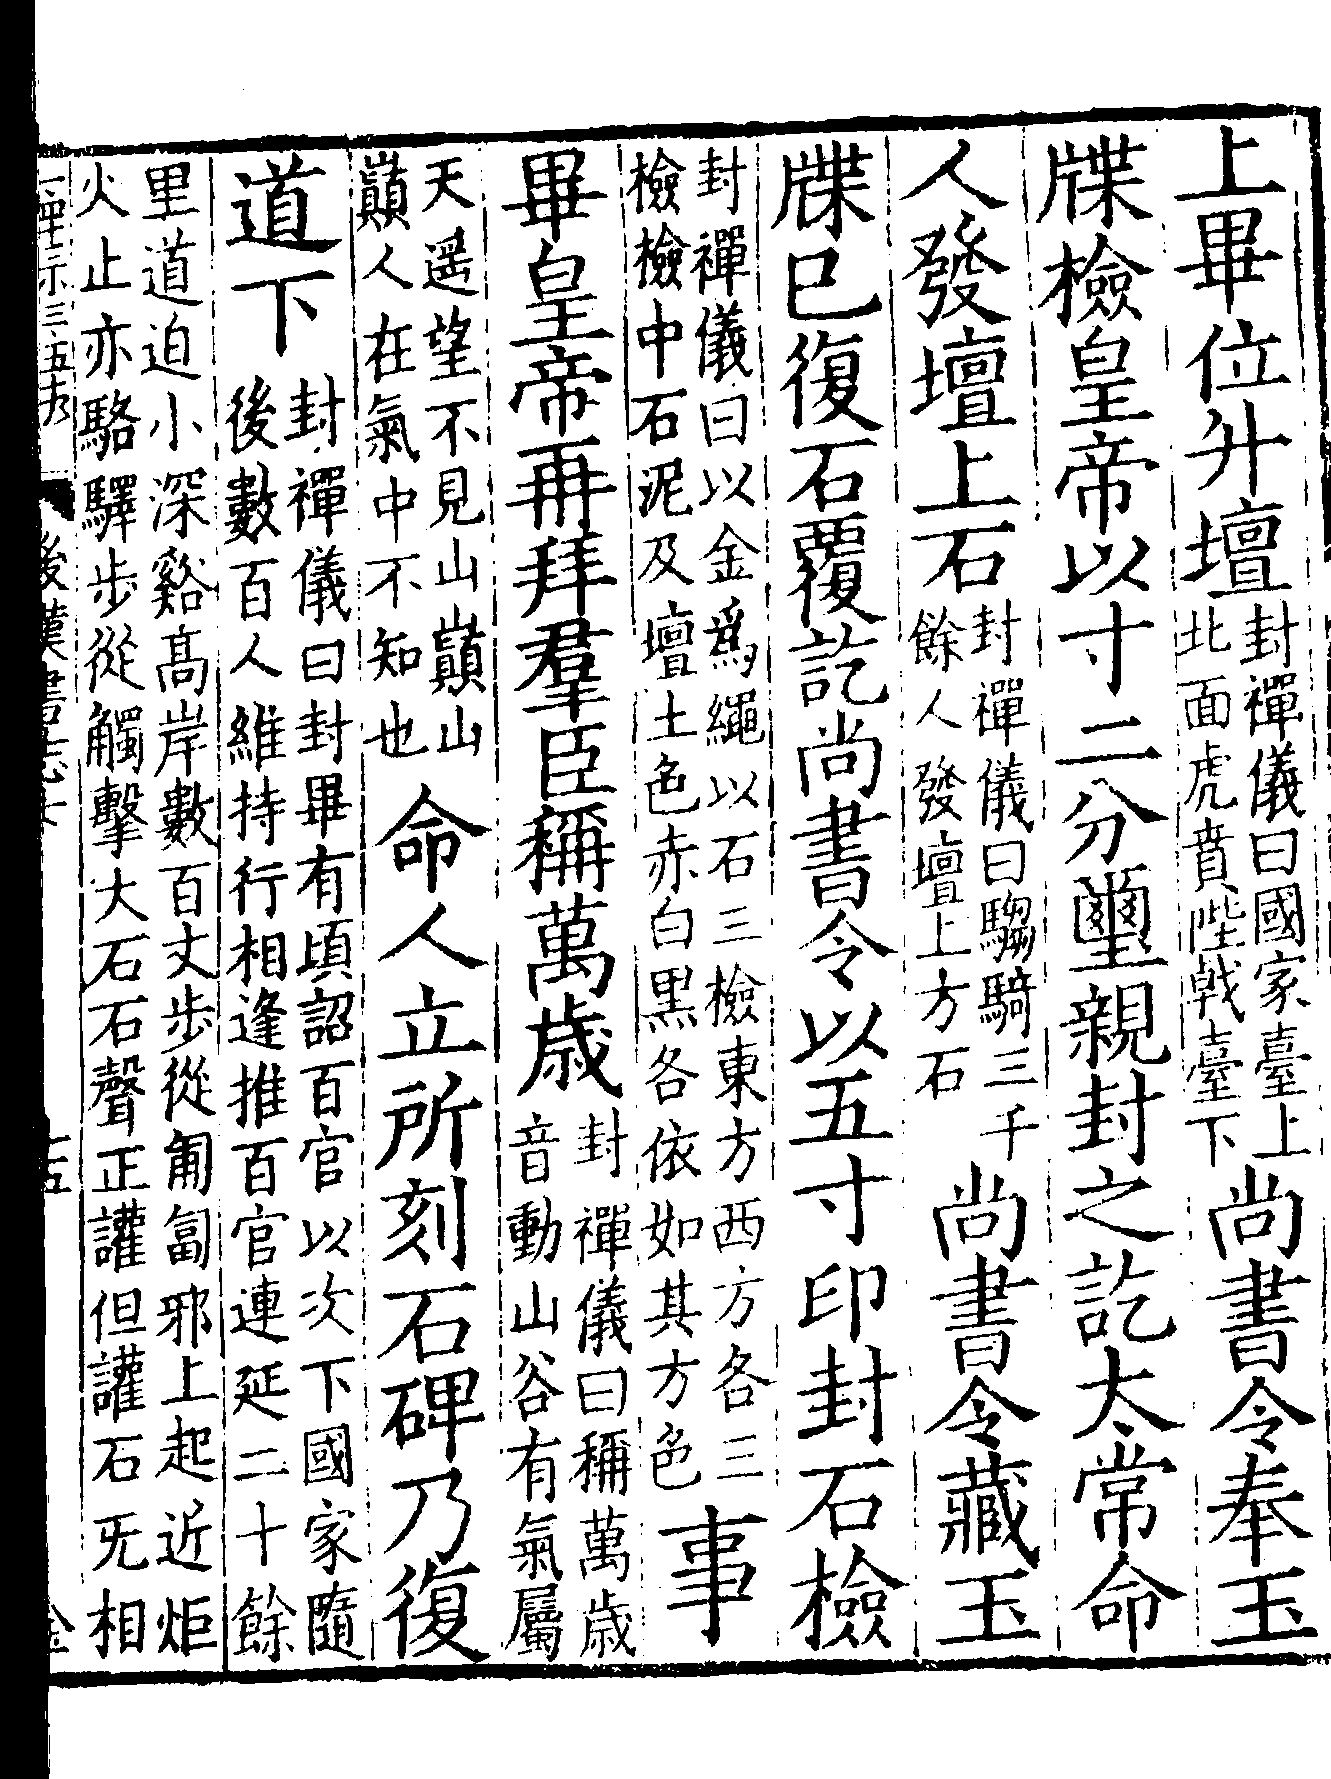 上畢位升壇封禪儀曰國家臺上北面虎賁陛戟臺下尚書令奉玉
牒檢皇帝以寸二分璽親封之訖太常命
人發壇上石封禪儀曰騶騎三千餘人發壇上方石尚書令藏玉
牒已復石覆訖尚書令以五寸印封石檢
封禪儀曰以金為繩以石三檢東方西方各三檢檢中石泥及壇土色赤白黑各依如其方色事
畢皇帝再拜羣臣稱萬歲封禪儀曰稱萬歲音動山谷有氣屬
天遥望不見山巔山巔人在氣中不知也命人立所刻石碑乃復
道下封禪儀曰封畢有頃詔百官以次下國家隨後數百人維持行相逢推百官連延二十餘
里道迫小深谿髙岸數百丈步從匍匐邪上起近炬火止亦駱驛步從觸擊大石石聲正讙但讙石旡相
後漢書志七
十五